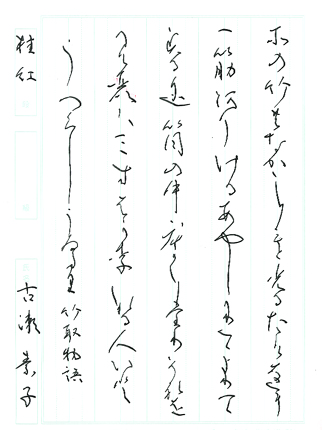 その竹のなかにもと光るたけなむ
一筋ありけるあやしかりてよりて
見るに筒の中ひかりたりそれを
みれは三寸はかりなる人いと
うつくしうてゐたり 竹取物語
桂紅 古瀬 子